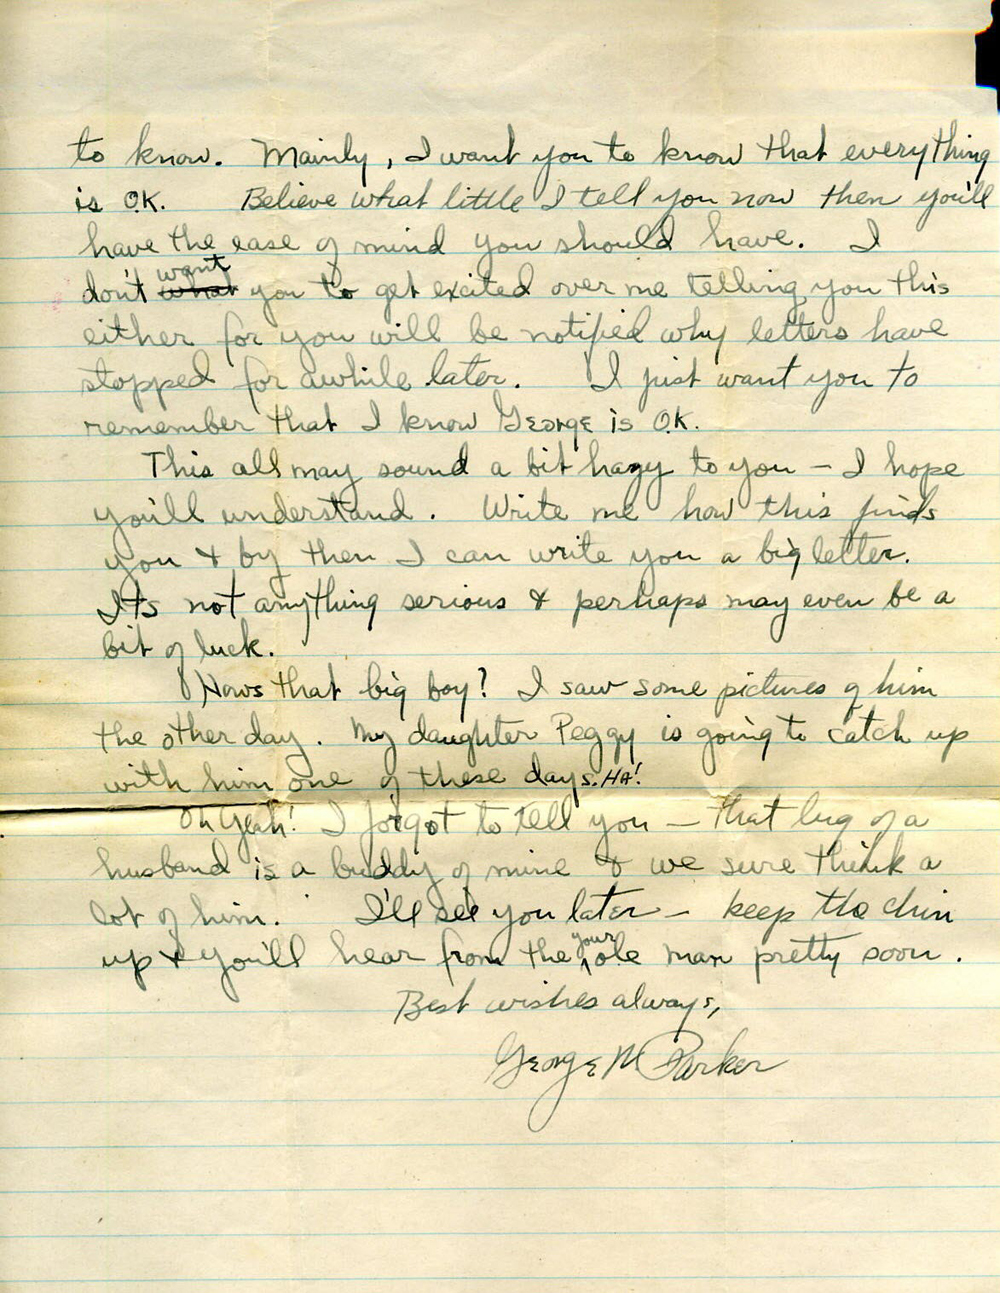 to know. Mainly, I want you to know that everything
is O.K. Believe what little I tell you now then you'll
have the ease of mind you should have. I
want
don't what you to get excited over me telling you this
either for you will be notified why letters have
stopped for awhile later. I just want you to
remember that I know George is O.K.
This all may sound a bit hazy to you – I hope
you'll understand. Write me how this finds
you & by then I can write you a big letter.
Its not anything serious & perhaps may even be a
bit of luck.
Hows that big boy? I saw some pictures of him
the other day. My daughter Peggy is going to catch up
with him one of these days. HA!
Oh Yeah! I forgot to tell you – that lug of a
husband is a buddy of mine & we sure think a
lot of him. I'll see you later – keep the chin
your
up & you'll hear from the ole man pretty soon.
Best wishes always,
George M Parker